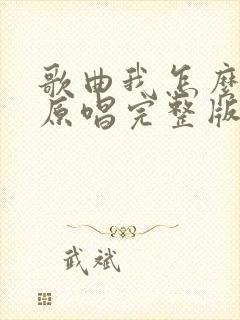 歌曲我怎麼
原唱完整版
武斌